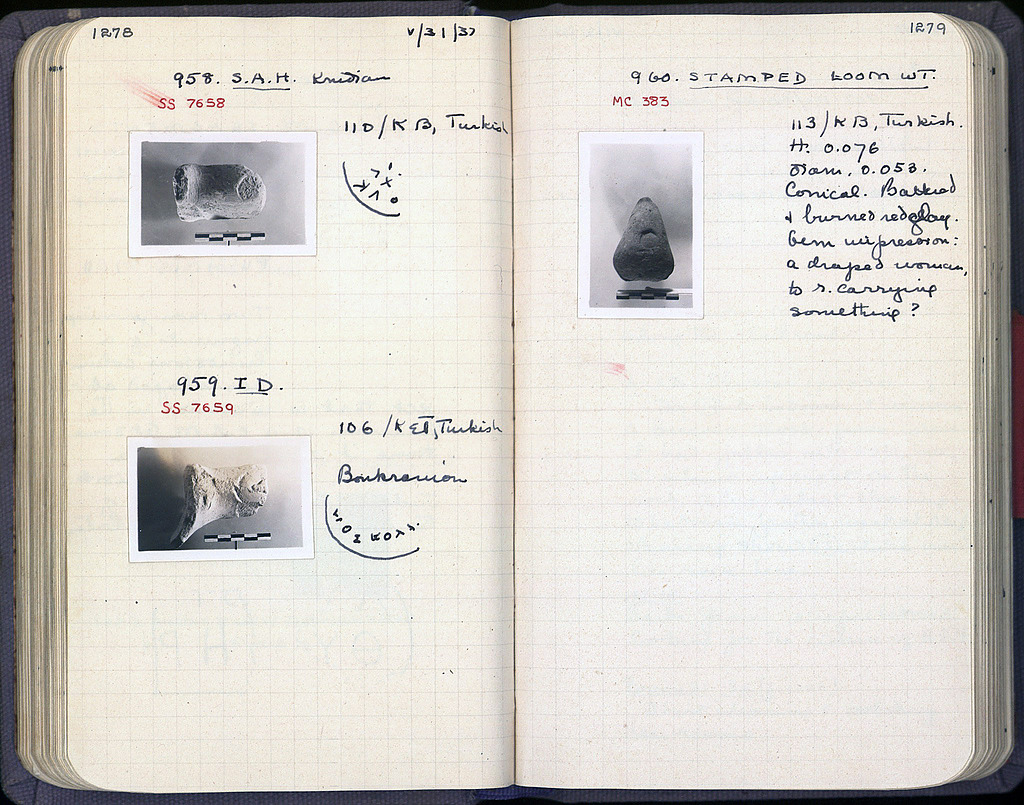 1278
V/31/37
958. S.A.H. Knidian
SS 7658
110/KB, Turkish
959. ID.
SS 7659
106/KET, Turkish
Boukranion
1279
960. STAMPED LOOM WT.
MC 383
113/KB, Turkish.
H. 0.076
Diam. 0.053.
Conical. Battered
& burned red clay.
Gem impression:
a draped woman,
to r. carrying
something?